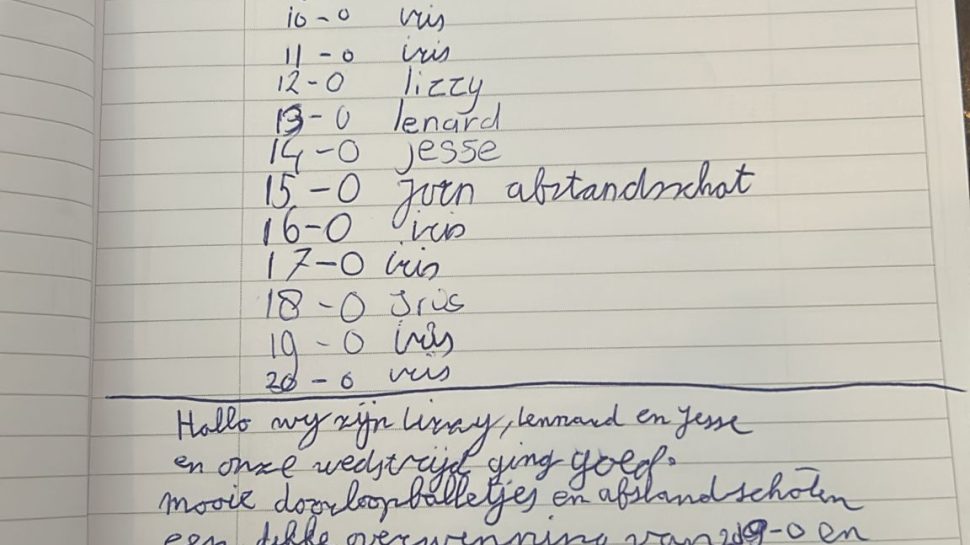 10-0 iris
11-0 iris
12-0 lizzy
13-0 lenard
14-0 jesse
15-0 jorn afstandsschot
16-0 iris
17-0 iris
18-0 Iris
19-0 iris
20-0 iris
Hallo wy zijn lizzy, lennard en Jesse
en onze wedstrijd ging goed.
mooie doorloopballetjes en afstandschoten
een dikke overwinning van -0 en